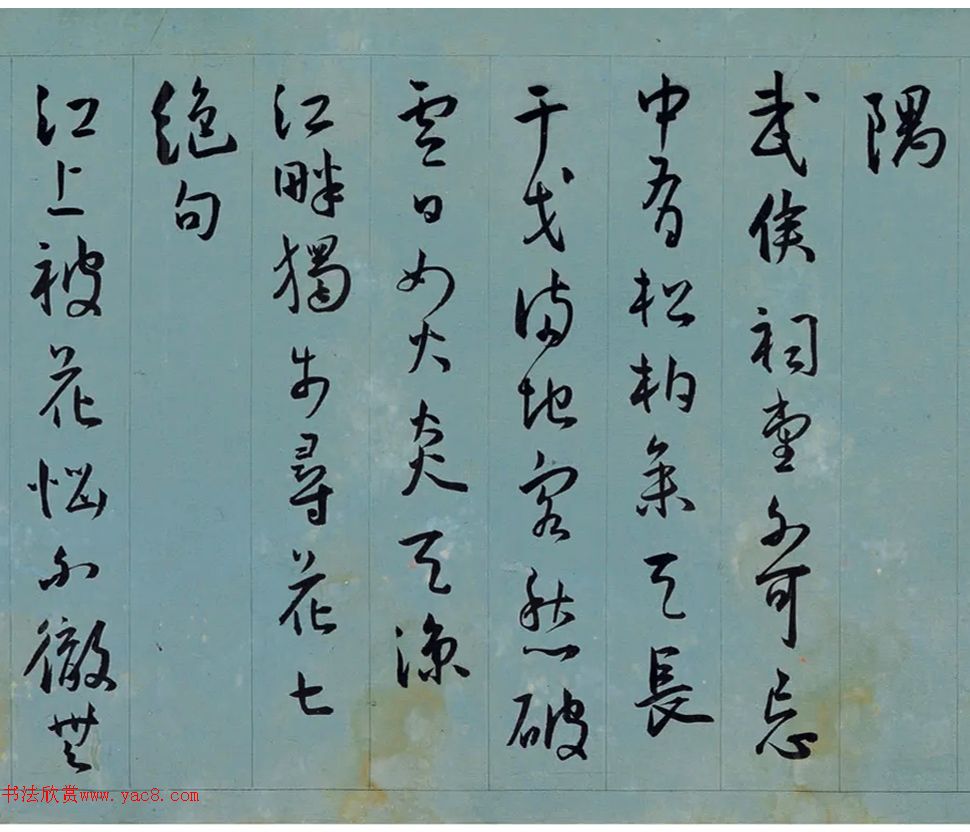 隅
武侯祠堂不可忘
中有松柏參天長
干戈滿地客愁破
雲日如火炎天涼
江畔獨步尋花七
絕句
江上被花惱不徹無
书法欣赏www.yac8.com